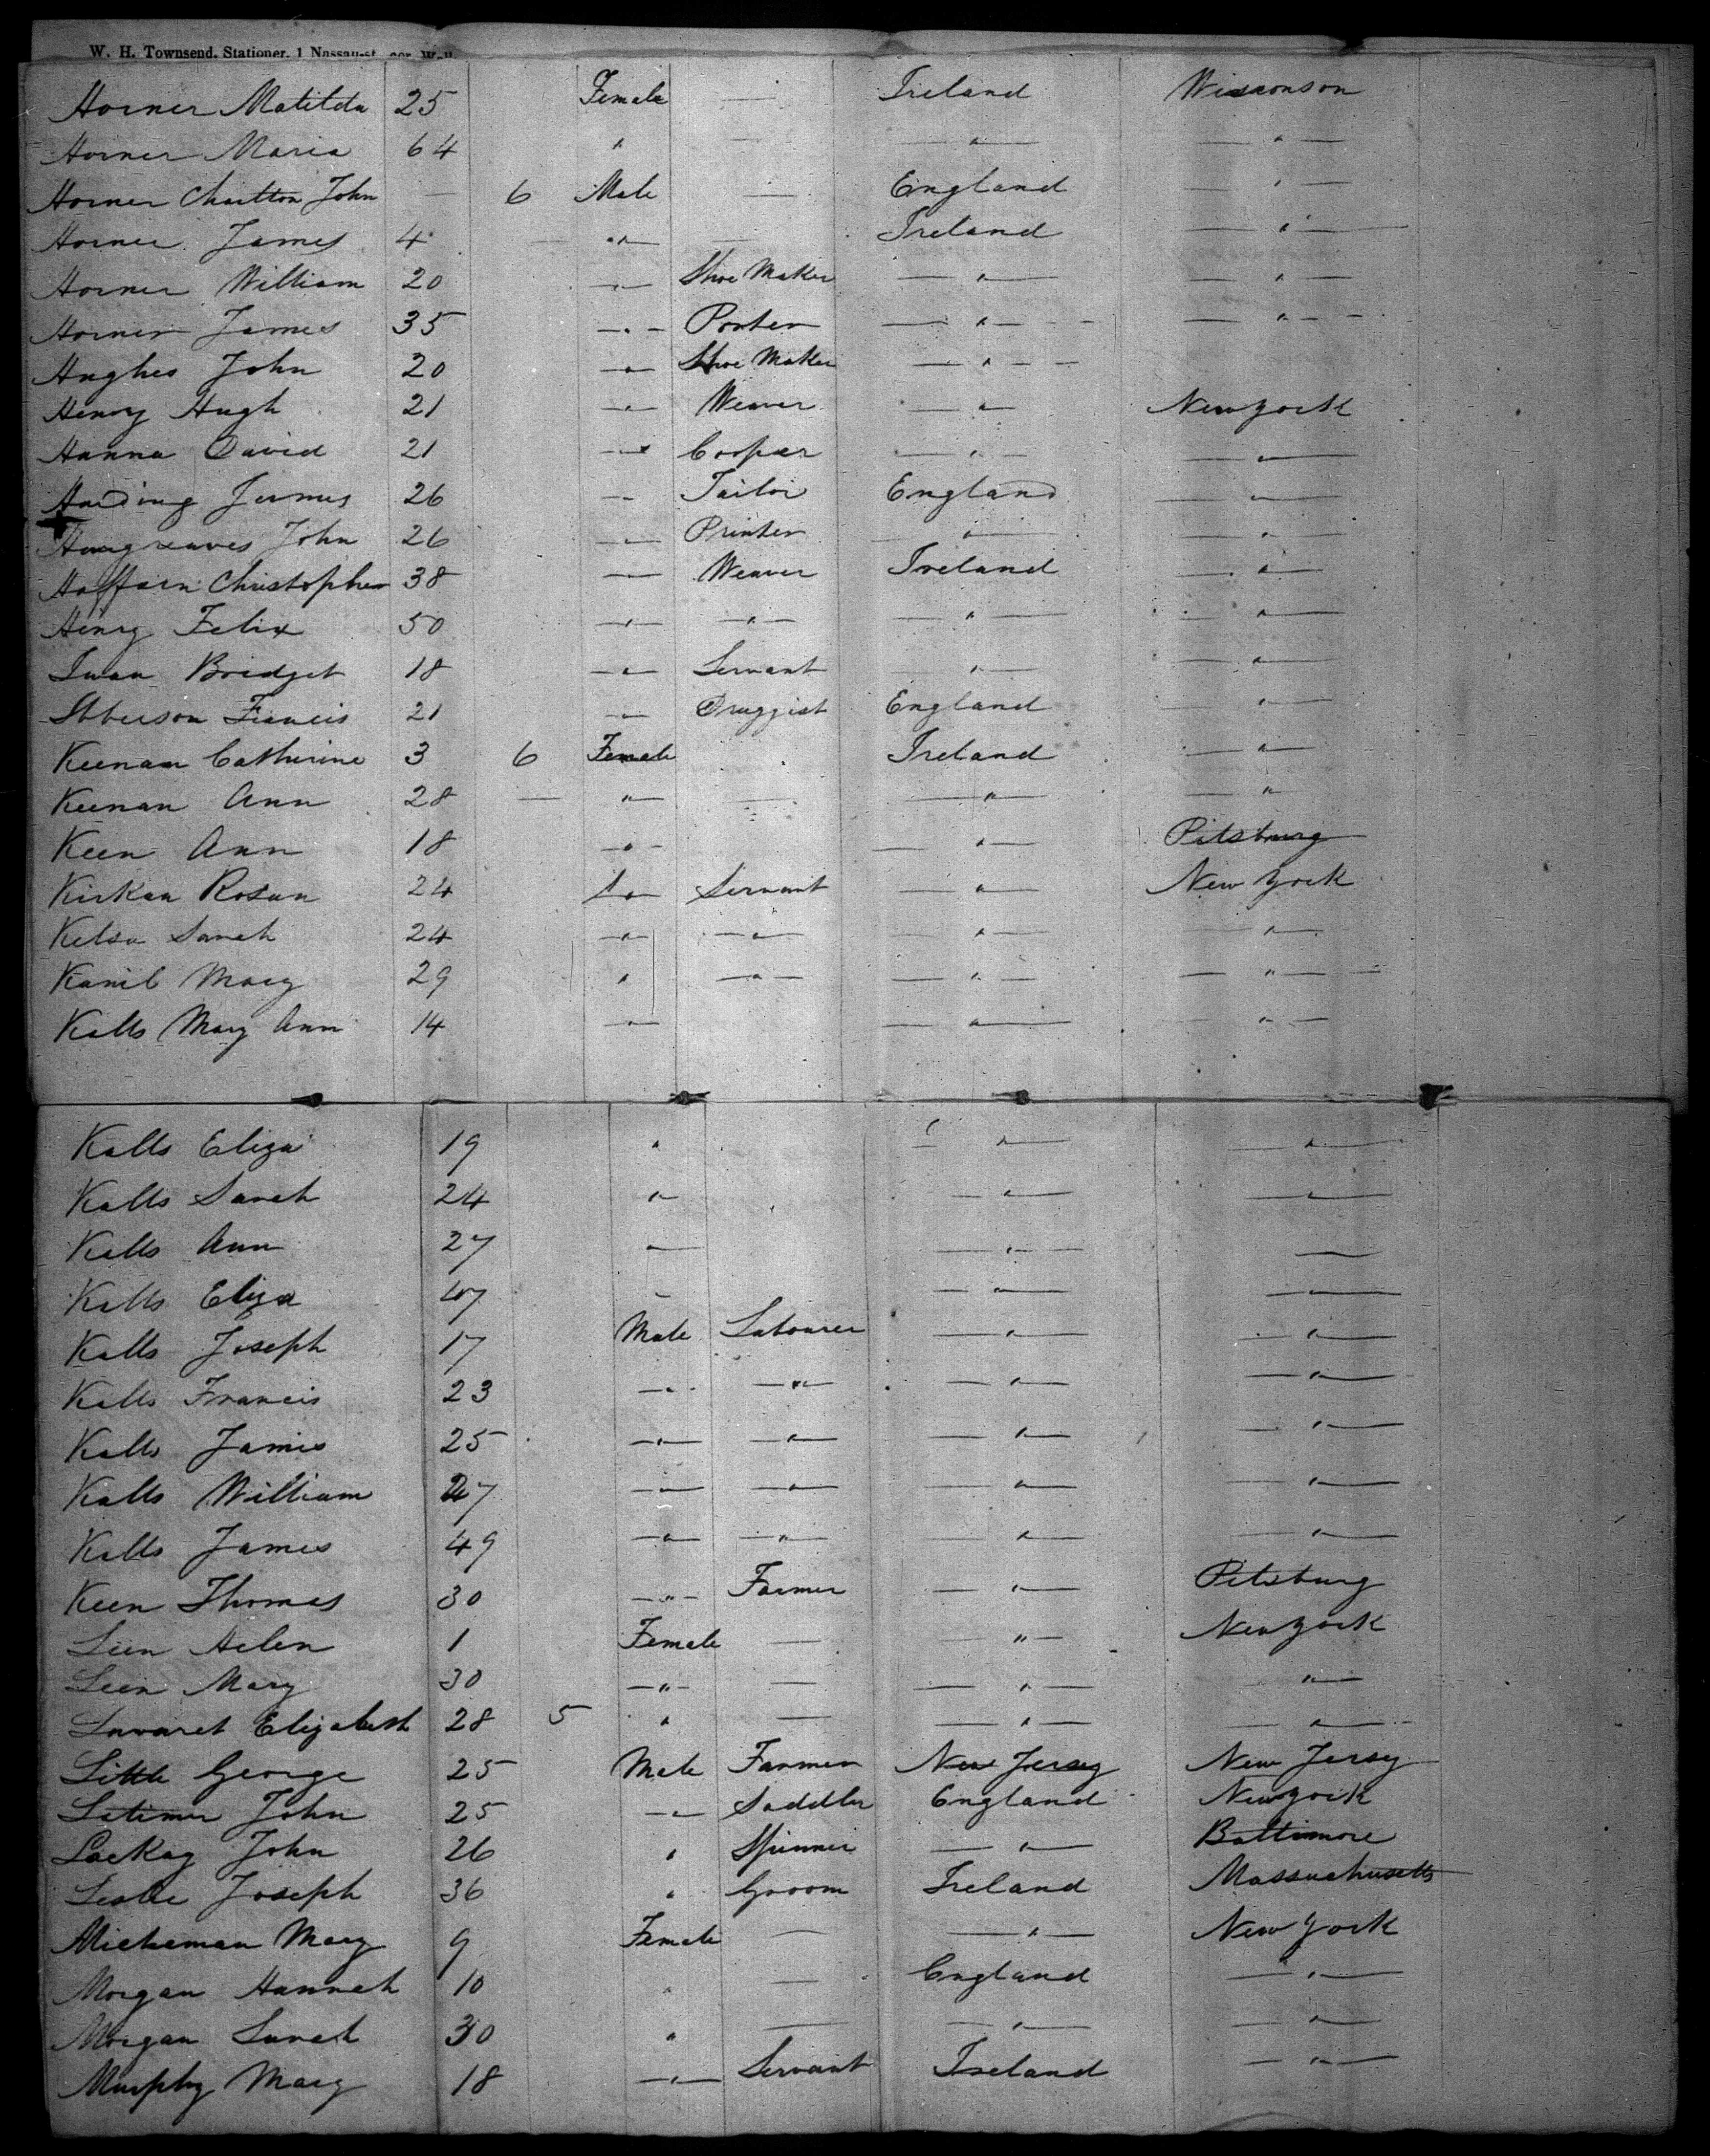 W. H. Townsend, Stationer, 1 Nassau-st. cor Wall
Horner Matilda 25 Female — Ireland Wisconson
Horner Maria 64 " — " "
Horner Charlton John — 6 Male — England "
Horner James 4 — " — Ireland "
Horner William 20 " Shoe Maker " "
Horner James 35 " Porter " "
Hughes John 20 " Shoe Maker "
Henry Hugh 21 " Weaver " New york
Hanna David 21 " Cooper " "
Harding James 26 " Tailor England "
Hargreaves John 26 " Printer " "
Halfarn Christopher 38 " Weaver Ireland "
Henry Felix 50 " " " "
Bridget 18 " Servant " "
Ibberson Francis 21 " Druggist England "
Keenan Catherine 3 6 Female Ireland "
Keenan Ann 28 — " — " "
Keen Ann 18 " " Pitsburg
Kirkan Rosan 24 " Servant " New York
Kelso Sarah 24 " " " "
Mary 29 " " " "
Kalls Mary Ann 14 " " "
Kalls Eliza 19 " " "
Kalls Sarah 24 " " "
Kalls Ann 27 " " "
Kalls Eliza 47 " " "
Kalls Joseph 17 Male Labourer " "
Kalls Francis 23 " " " "
Kalls James 25 " " " "
Kalls William 27 " " " "
Kalls James 49 " " " "
Keen Thomas 30 " Farmer " Pitsburg
Leen Helen 1 Female — " New york
Leen Mary 30 " — " "
Elizabeth 28 5 " — " "
Little George 25 Male Farmer New Jersey New Jersey
Latimer John 25 " Saddler England New york
Lackay John 26 " Spinner " Baltimore
Leslie Joseph 36 " Groom Ireland Massuahusetts
Mary 9 Female — " New York
Morgan Hannah 10 " — England "
Morgan Sarah 30 " — " "
Murphy Mary 18 " Servant Ireland "